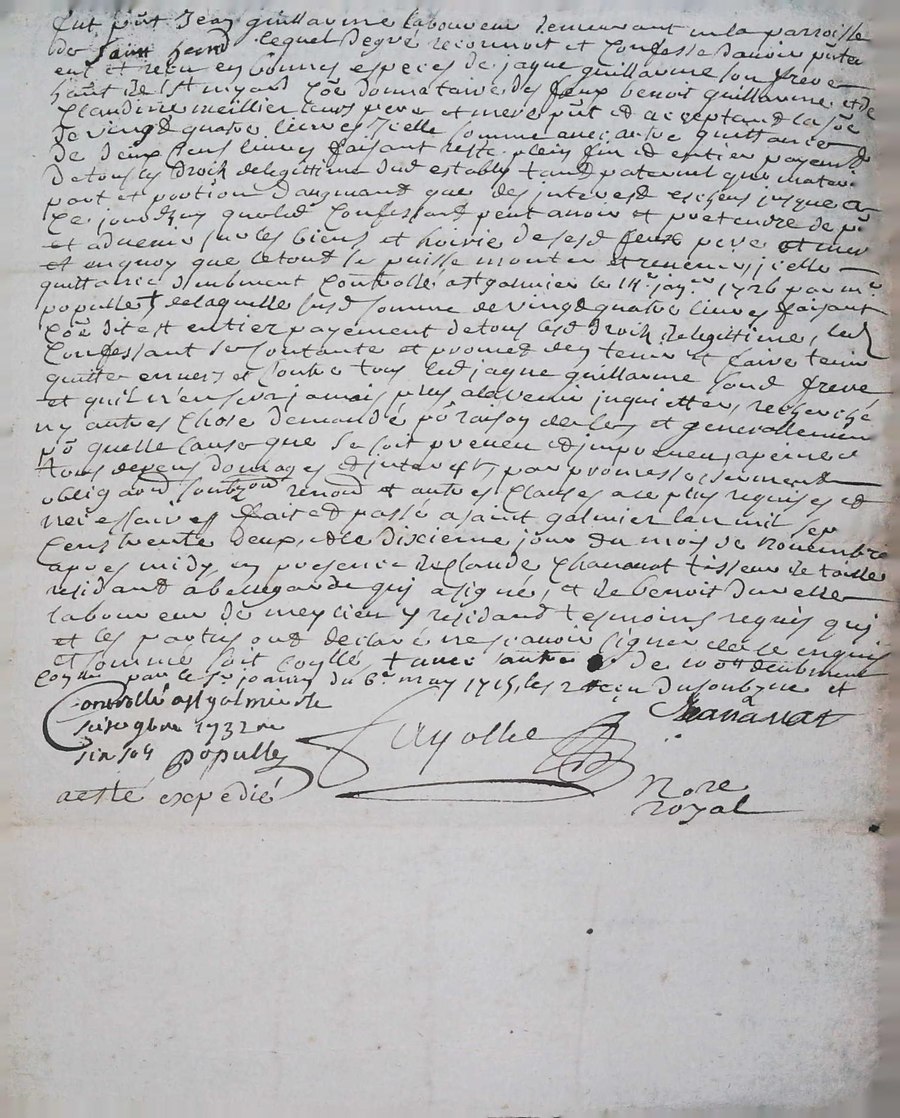 fut pnt Jean guillaume laboureur demeurant en la parroisse
de Saint lequel degré reconnoit et confesse d'avoir pnte
ent et recu en bonnes especes de jaque guillaume son frere
habt de St coe donnataire des feux benoit guillaume et de
Claudine meillier leurs pere et mere pnt et acceptant la soe
de vingt quatre livres Icelle somme avec autre quittance de
de deux cens livres faisant reste plein fin et entier payemt
de tous les droits de legittime sud establis tand paternel que mater
part et portion d'augmand que des interest escheus jusque a
ce jourdhuy quoled Confessant peut avoir et pretendre de pnt
et advenir sur les biens et hoirie desesd feux pere et mere
et enquoy que le tout se puisse monter et revenir, jcelle
quittance duhement Controllé a St galmier le 14e janr 1726 par mr
populle de laquelle susd somme de vingt quatre livres faisant
coe dit est entier payement de tous lesd droits de legittime, led
Confessant se contante et promet den tenir et faire tenir
quitte envers et contre tous led jaque guillaume sond frere
et quil n'en sera jamais plus alavenir inquietter, recherché
ny autres chose demandé po raison diceles et generallement
po quelle cause que se soit preveu et jmpreveu, apeine de
tous depens domages et interest, par promesse serment
obligaons soubzons renond et autres clauses ace plus requises et
necessaires fait et passé a saint galmier lan mil sep
cens trente deux, et le dixieme jour du mois de novembre
apres midy, en presence de Claude Chananat tisseur de toille
residant a bellegarde qui a signé, et de benoit
laboureur de meylieu y residand tesmoins requis qui
et les parties ont declaré ne scavoir signer de ce enquis
et sommé soit Conllé
par le Sr joanny du 6e may 1715, les et
Controllé a St galmier le
gbre 1732 re
six sols populle
fayolle
Chananat
Nore
royal
a esté expedié